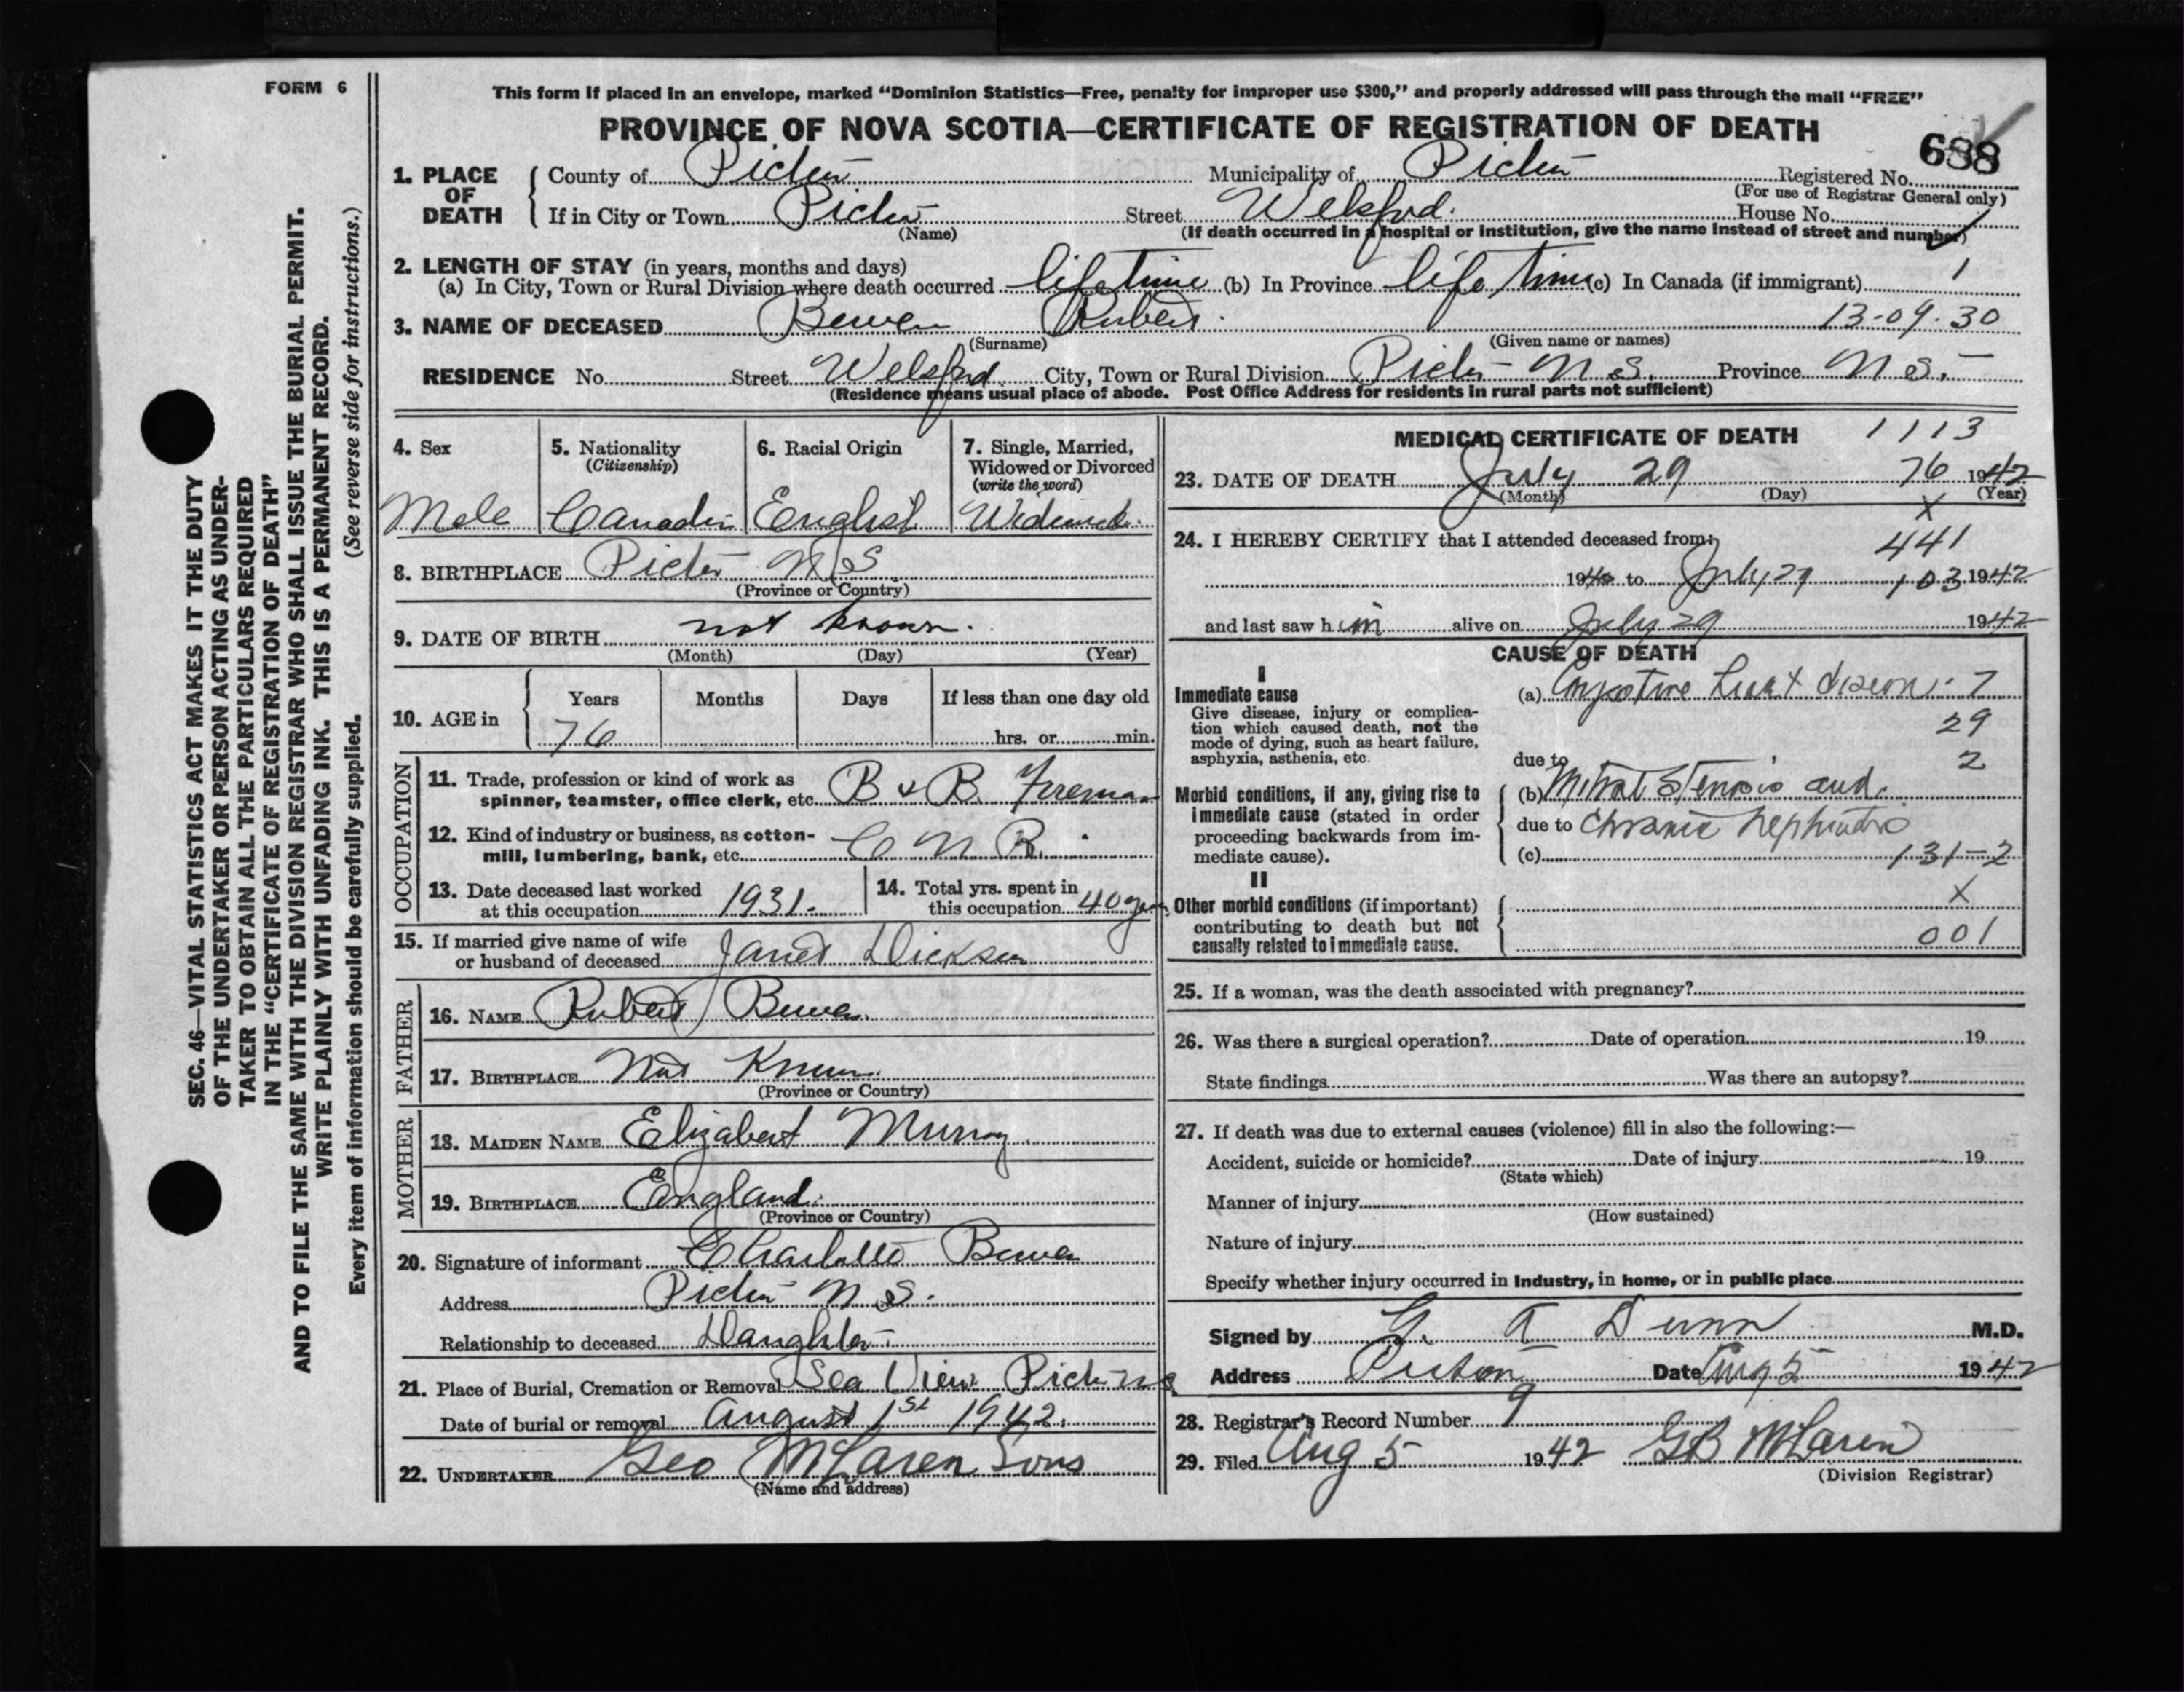 FORM 6
This form if placed in an envelope, marked “Dominion Statistics—Free, penalty for improper use $300,” and properly addressed will pass through the mail “FREE”
PROVINCE OF NOVA SCOTIA—CERTIFICATE OF REGISTRATION OF DEATH
688
1. PLACE OF DEATH { County of Pictou Municipality of Pictou Registered No.
(For use of Registrar General only)
If in City or Town Pictou Street Welsford. House No.
(Name) (If death occurred in a hospital or institution, give the name instead of street and number)
2. LENGTH OF STAY (in years, months and days)
(a) In City, Town or Rural Division where death occurred life time (b) In Province life time (c) In Canada (if immigrant) 1
3. NAME OF DECEASED Robert. 13-09-30
(Surname) (Given name or names)
RESIDENCE No. Street Welsford. City, Town or Rural Division Pictou N S. Province N S.
(Residence means usual place of abode. Post Office Address for residents in rural parts not sufficient)
4. Sex 5. Nationality (Citizenship) 6. Racial Origin 7. Single, Married, Widowed or Divorced (write the word)
Male Canadian English Widowed.
8. BIRTHPLACE Pictou N S
(Province or Country)
9. DATE OF BIRTH not known.
(Month) (Day) (Year)
10. AGE in { Years Months Days If less than one day old
76 hrs. or min.
OCCUPATION
11. Trade, profession or kind of work as spinner, teamster, office clerk, etc. B & B Foreman
12. Kind of industry or business, as cotton-mill, lumbering, bank, etc. C N R.
13. Date deceased last worked at this occupation 1931.
14. Total yrs. spent in this occupation 40 years
15. If married give name of wife or husband of deceased Janet Dickson
FATHER
16. NAME Robert
17. BIRTHPLACE Not Known.
(Province or Country)
MOTHER
18. MAIDEN NAME Elizabeth Murray
19. BIRTHPLACE England.
(Province or Country)
20. Signature of informant Charlotte
Address Pictou N S.
Relationship to deceased Daughter
21. Place of Burial, Cremation or Removal Sea View Pictou N S.
Date of burial or removal August 1st 1942.
22. UNDERTAKER Geo McLaren Sons
(Name and address)
MEDICAL CERTIFICATE OF DEATH 1113
23. DATE OF DEATH July 29 76 1942
(Month) (Day) (Year)
X
24. I HEREBY CERTIFY that I attended deceased from: 441
1940 to July 29 103 1942
and last saw h im alive on July 29 1942
CAUSE OF DEATH
I
Immediate cause
Give disease, injury or complication which caused death, not the mode of dying, such as heart failure, asphyxia, asthenia, etc.
(a) Congestive heart disease. 7
29
due to 2
Morbid conditions, if any, giving rise to immediate cause (stated in order proceeding backwards from immediate cause).
(b) Mitral Stenosis and.
due to Chronic Nephritis
(c) 131-2
II
Other morbid conditions (if important) contributing to death but not causally related to immediate cause.
X
001
25. If a woman, was the death associated with pregnancy?
26. Was there a surgical operation? Date of operation 19
State findings Was there an autopsy?
27. If death was due to external causes (violence) fill in also the following:—
Accident, suicide or homicide? Date of injury 19
(State which)
Manner of injury
(How sustained)
Nature of injury
Specify whether injury occurred in Industry, in home, or in public place
Signed by G. A Dunn M.D.
Address Pictou Date Aug 5 1942
28. Registrar's Record Number 9
29. Filed Aug 5 1942 GB McLaren
(Division Registrar)
SEC. 46—VITAL STATISTICS ACT MAKES IT THE DUTY
OF THE UNDERTAKER OR PERSON ACTING AS UNDER-
TAKER TO OBTAIN ALL THE PARTICULARS REQUIRED
IN THE “CERTIFICATE OF REGISTRATION OF DEATH”
AND TO FILE THE SAME WITH THE DIVISION REGISTRAR WHO SHALL ISSUE THE BURIAL PERMIT.
WRITE PLAINLY WITH UNFADING INK. THIS IS A PERMANENT RECORD.
Every item of information should be carefully supplied. (See reverse side for instructions.)